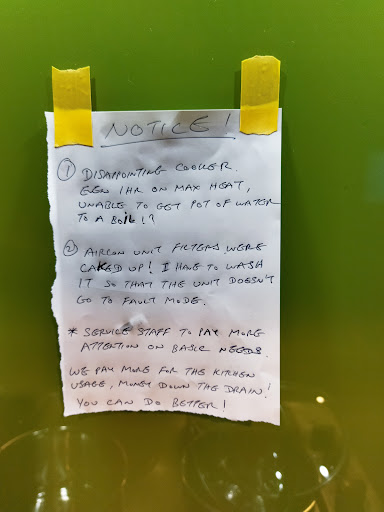 NOTICE!
① DISAPPOINTING COOKER.
EVEN 1HR ON MAX HEAT,
UNABLE TO GET POT OF WATER
TO A BOIL!?
② AIRCON UNIT FILTERS WERE
CAKED UP! I HAVE TO WASH
IT SO THAT THE UNIT DOESN'T
GO TO FAULT MODE.
* SERVICE STAFF TO PAY MORE
ATTENTION ON BASIC NEEDS.
WE PAY MORE FOR THE KITCHEN
USAGE, MONEY DOWN THE DRAIN!
YOU CAN DO BETTER!